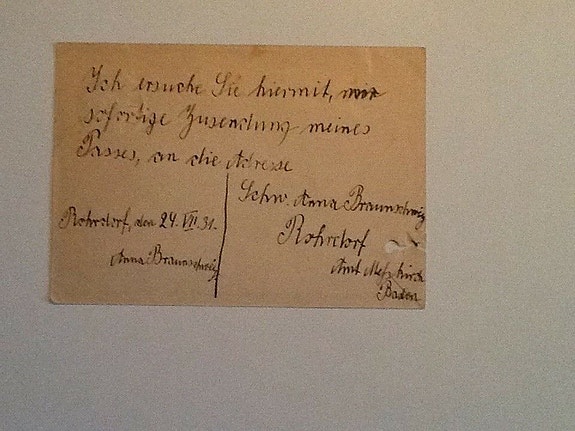 Ich ersuche Sie hiermit, mir
sofortige Zusendung meines
Passes, an die Adresse
Schw. Anna Braunschweig
Rohrdorf
Amt Meßkirch
Baden
Rohrdorf, den 24. VII. 31.
Anna Braunschweig